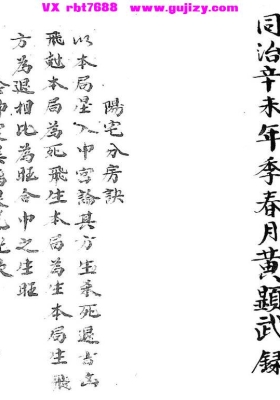 VX rbt7688 www.gujizy.com
同治辛未年季春月黃顕武録
陽宅分房訣
以本局星入中宮論其方生來死退書出
飛尅本局為死飛生本局為生本局生飛
方為退相比為旺合中之生旺